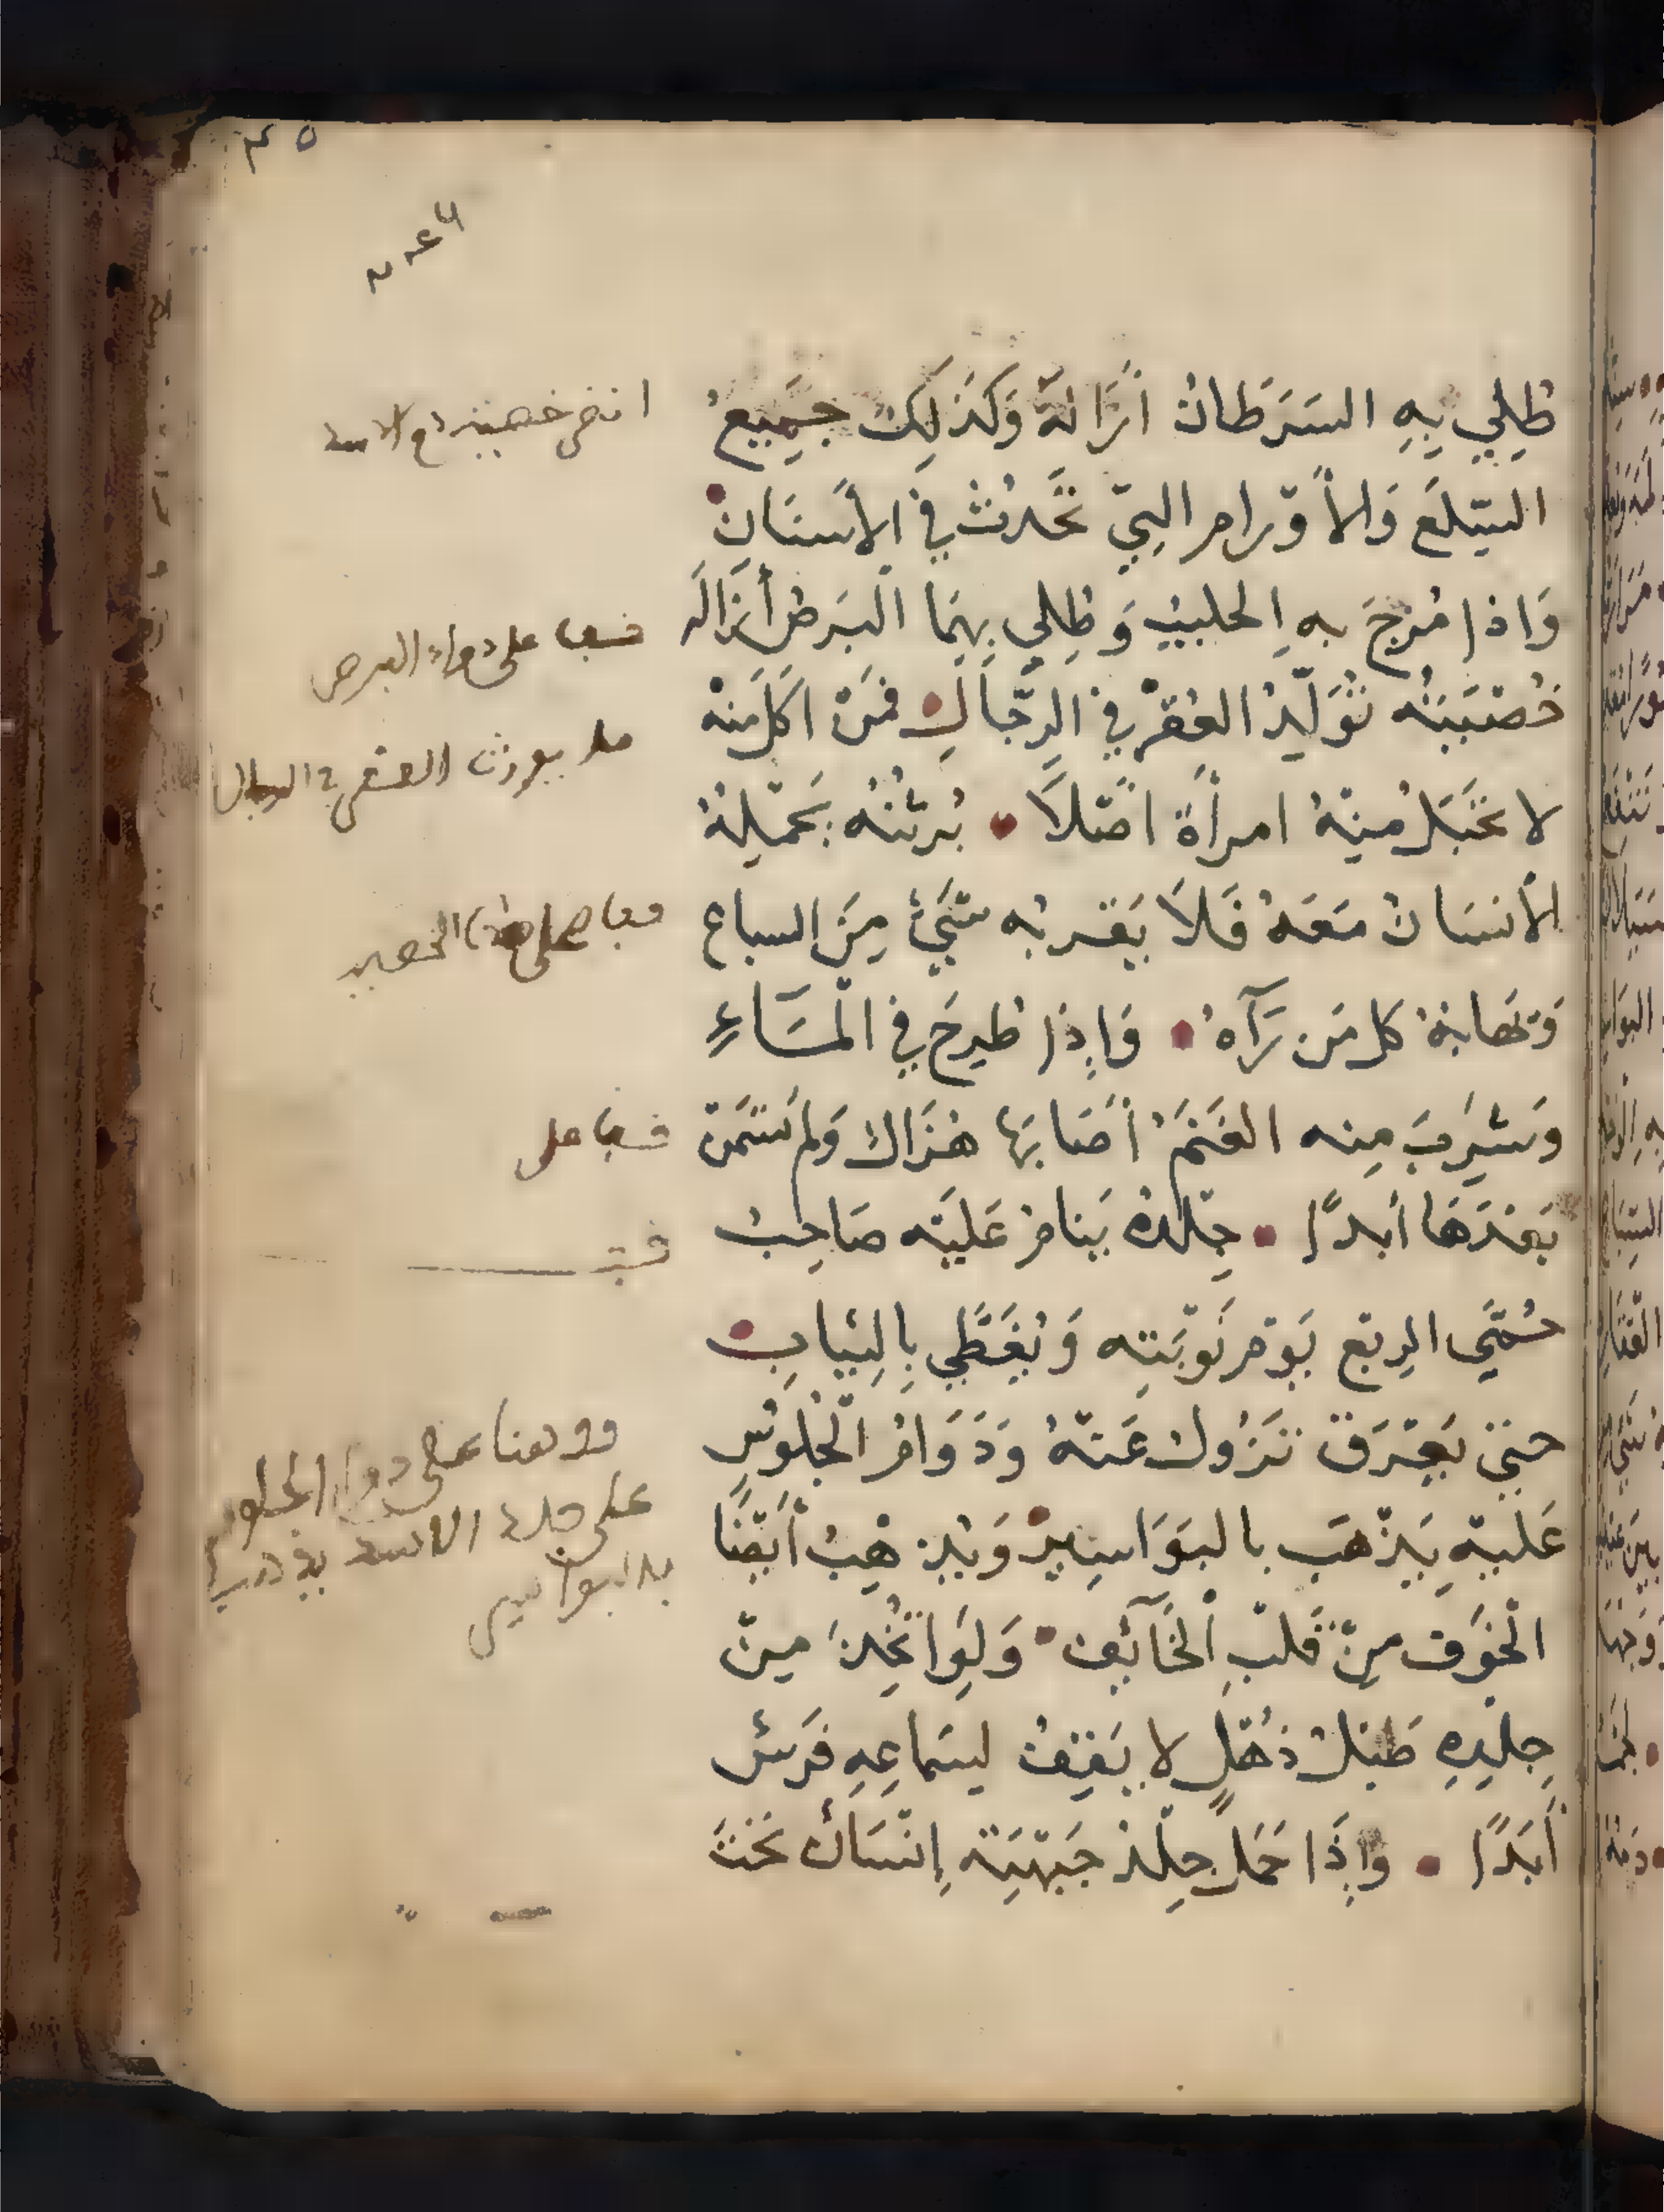 طُلِي بِهِ السَرَطانْ أزَالهْ وَكذلِكَ جَمِيعُ
السّلَع وَالأوْرام التِي تَحدُثْ فِي الأسنَانْ
وَاذا مُزجَ بهِ الحليبْ وَطُلِي بِهمَا البَرصْ أزالَه
خُصْيَتهُ تُوَلّدُ العُقرْ فِي الرّجَالِ فمَنْ اكلَ منه
لا تَحْبَلُ مِنهُ امرأةْ اصْلاً • بُرثنهُ يحَمْلهُ
الأنسَانْ مَعَهُ فَلاَ يَقْربُه شَيْءْ مِنَ السباع
وَتهابهُ كل مَن رَآهُ • وَإِذا طُرِحَ فِي المَآءِ
وَشرِبَ مِنه الغَنَمْ أصَابَها هُزَالْ وَلم تَسْمَنْ
بَعْدَهَا أبدًا • جِلدهْ يَنامْ عَليْه صَاحِبْ
حُمَّي الرِبْع يَوْم نَوْبَتِه وَيُغَطِّي بِالثِيابْ
حتي يَعْرَقْ تزُولْ عَنهُ وَدَوَامُ الجُلوُسِ
عَليْهِ يَذْهَب بالبَوَاسِيرْ وَيُذهِبْ أيْضًا
الخَوْف مِنْ قَلْبِ الخَآئِف • وَلَوِ اتُّخِذَ مِنْ
جِلْدِهِ طَبْلْ دُهُلٍ لا يَقِفْ لِسَماعِهِ فَرَسْ
أبَدًا • وَإِذَا حَمَلَ جِلْدْ جَبْهَتِه إِنْسَانْ تَحْتَ
على دواء البرص
يورث العقم في الرجال
على
على
وهنا على دوام الجلوس
على جلد الاسد يذهب
بالبواسير